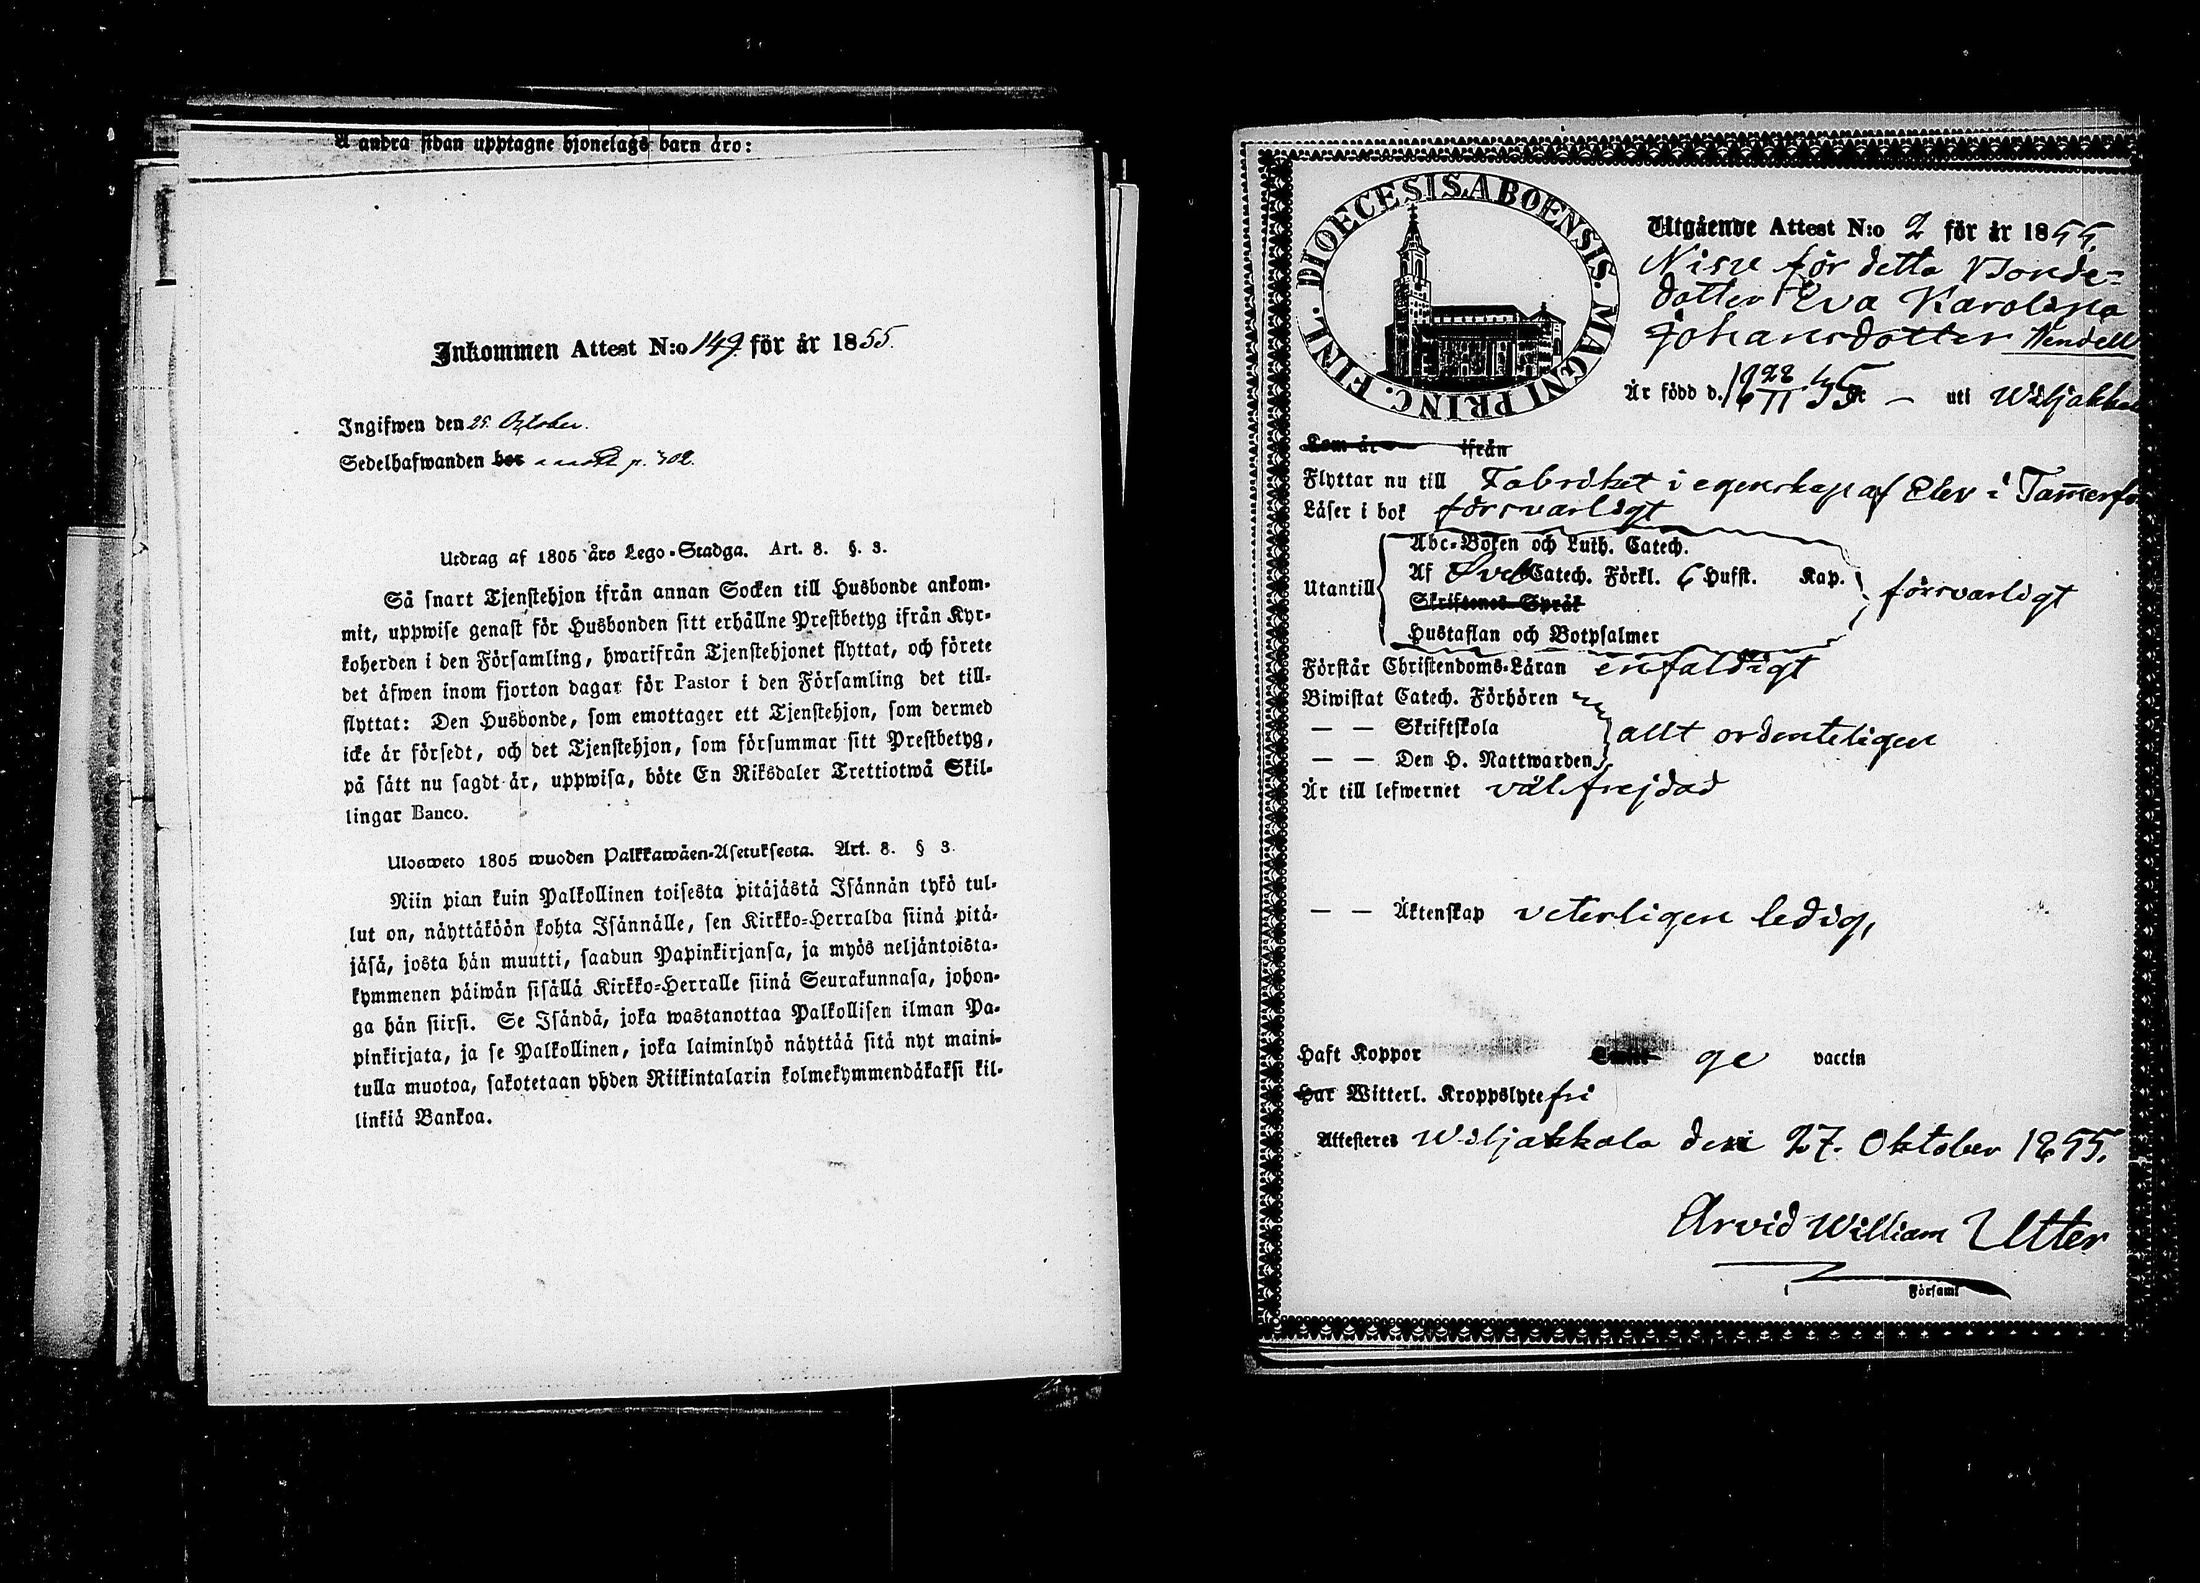 å andra sidan upptagne hjonelags barn äro:
Inkommen Attest N:o 149. för år 1855.
Ingifwen den 25. October.
Sedelhafwanden bor p. 302.
Utdrag af 1805 års Lego-Stadga. Art. 8. §. 3.
Så snart Tjenstehjon ifrån annan Socken till Husbonde ankom-
mit, uppwise genast för Husbonden sitt erhållne Prestbetyg ifrån Kyr-
koherden i den Församling, hwarifrån Tjenstehjonet flyttat, och förete
det äfwen inom fjorton dagar för Pastor i den Församling det till-
flyttat: Den Husbonde, som emottager ett Tjenstehjon, som dermed
icke är försedt, och det Tjenstehjon, som försummar sitt Prestbetyg,
på sätt nu sagdt är, uppwisa, böte En Riksdaler Trettiotwå Skil-
lingar Banco.
Ulosweto 1805 wuoden Palkkawäen-Asetuksesta. Art. 8. § 3.
Niin pian kuin Palkollinen toisesta pitäjästä Isännän tykö tul-
lut on, näyttäköön kohta Isännälle, sen Kirkko-Herralda siinä pitä-
jäsä, josta hän muutti, saadun Papinkirjansa, ja myös neljäntoista-
kymmenen päiwän sisällä Kirkko-Herralle siinä Seurakunnasa, johon-
ga hän siirsi. Se Isändä, joka wastanottaa Palkollisen ilman Pa-
pinkirjata, ja se Palkollinen, joka laiminlyö näyttää sitä nyt maini-
tulla muotoa, sakotetaan yhden Riikintalarin kolmekymmendäkaksi kil-
linkiä Bankoa.
DIOECESIS. ABOENSIS. MAGNI PRINC. FINL.
Utgående Attest N:o 2 för år 1855.
för detta Bonde-
dotter Eva Karolina
Johansdotter Wendell
Är född d. uti Wiljakkala
Kom år ifrån
Flyttar nu till Fabriket i egenskap af Elev i Tammerfo
Läser i bok försvarligt
Abc-Boken och Luth. Catech.
Utantill Af Catech. Förkl. 6 Hufst. Kap. försvarligt
Skriftenes Språk
Hustaflan och Botpsalmer
Förstår Christendoms-Läran enfaldigt
Biwistat Catech. Förhören
— — Skriftskola allt ordenteligen
— — Den H. Nattwarden
Är till lefwernet välfrejdad
— — Äktenskap veterligen ledig,
Haft Koppor ge vaccin
Har Witterl. Kroppslyte fri
Attesteres Wiljakkala den 27. Oktober 1855.
Arvid William Utter
Församl